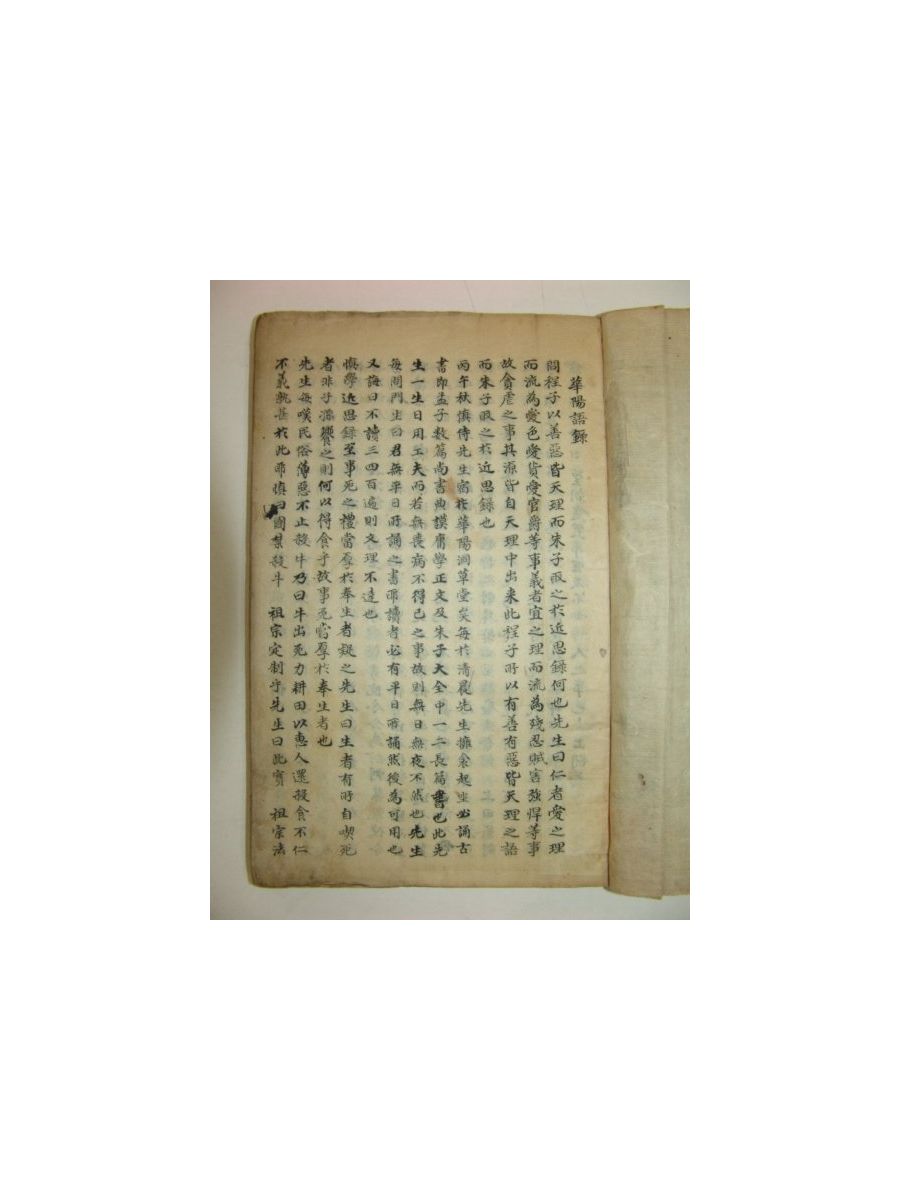 華陽語錄
問程子以善惡皆天理而朱子取之於近思錄何也先生曰仁者愛之理
而流為愛色愛貨愛官爵等事義者宜之理而流為殘忍賊害強悍等事
故貪虐之事其源皆自天理中出来此程子所以有善有惡皆天理之語
而朱子取之於近思錄也
丙午秋慎侍先生宿於華陽洞草堂矣每於清晨先生擁衾起坐必誦古
書即孟子數篇尚書典謨庸學正文及朱子大全中一二長篇書也此先
生一生日用工夫而若無喪病不得已之事故則無日無夜不然也先生
每問門生曰君無平日所誦之書耶讀者必有平日所誦然後為可用也
又誨曰不讀三四百遍則文理不達也
慎學近思錄至事死之禮當厚於奉生者疑之先生曰生者有所自喫死
者非子孫饗之則何以得食乎故事死當厚於奉生者也
先生每嘆民俗薄惡不止殺牛乃曰牛出死力耕田以惠人還殺食不仁
不義孰甚於此耶慎曰國禁殺牛 祖宗定制乎先生曰此實 祖宗法